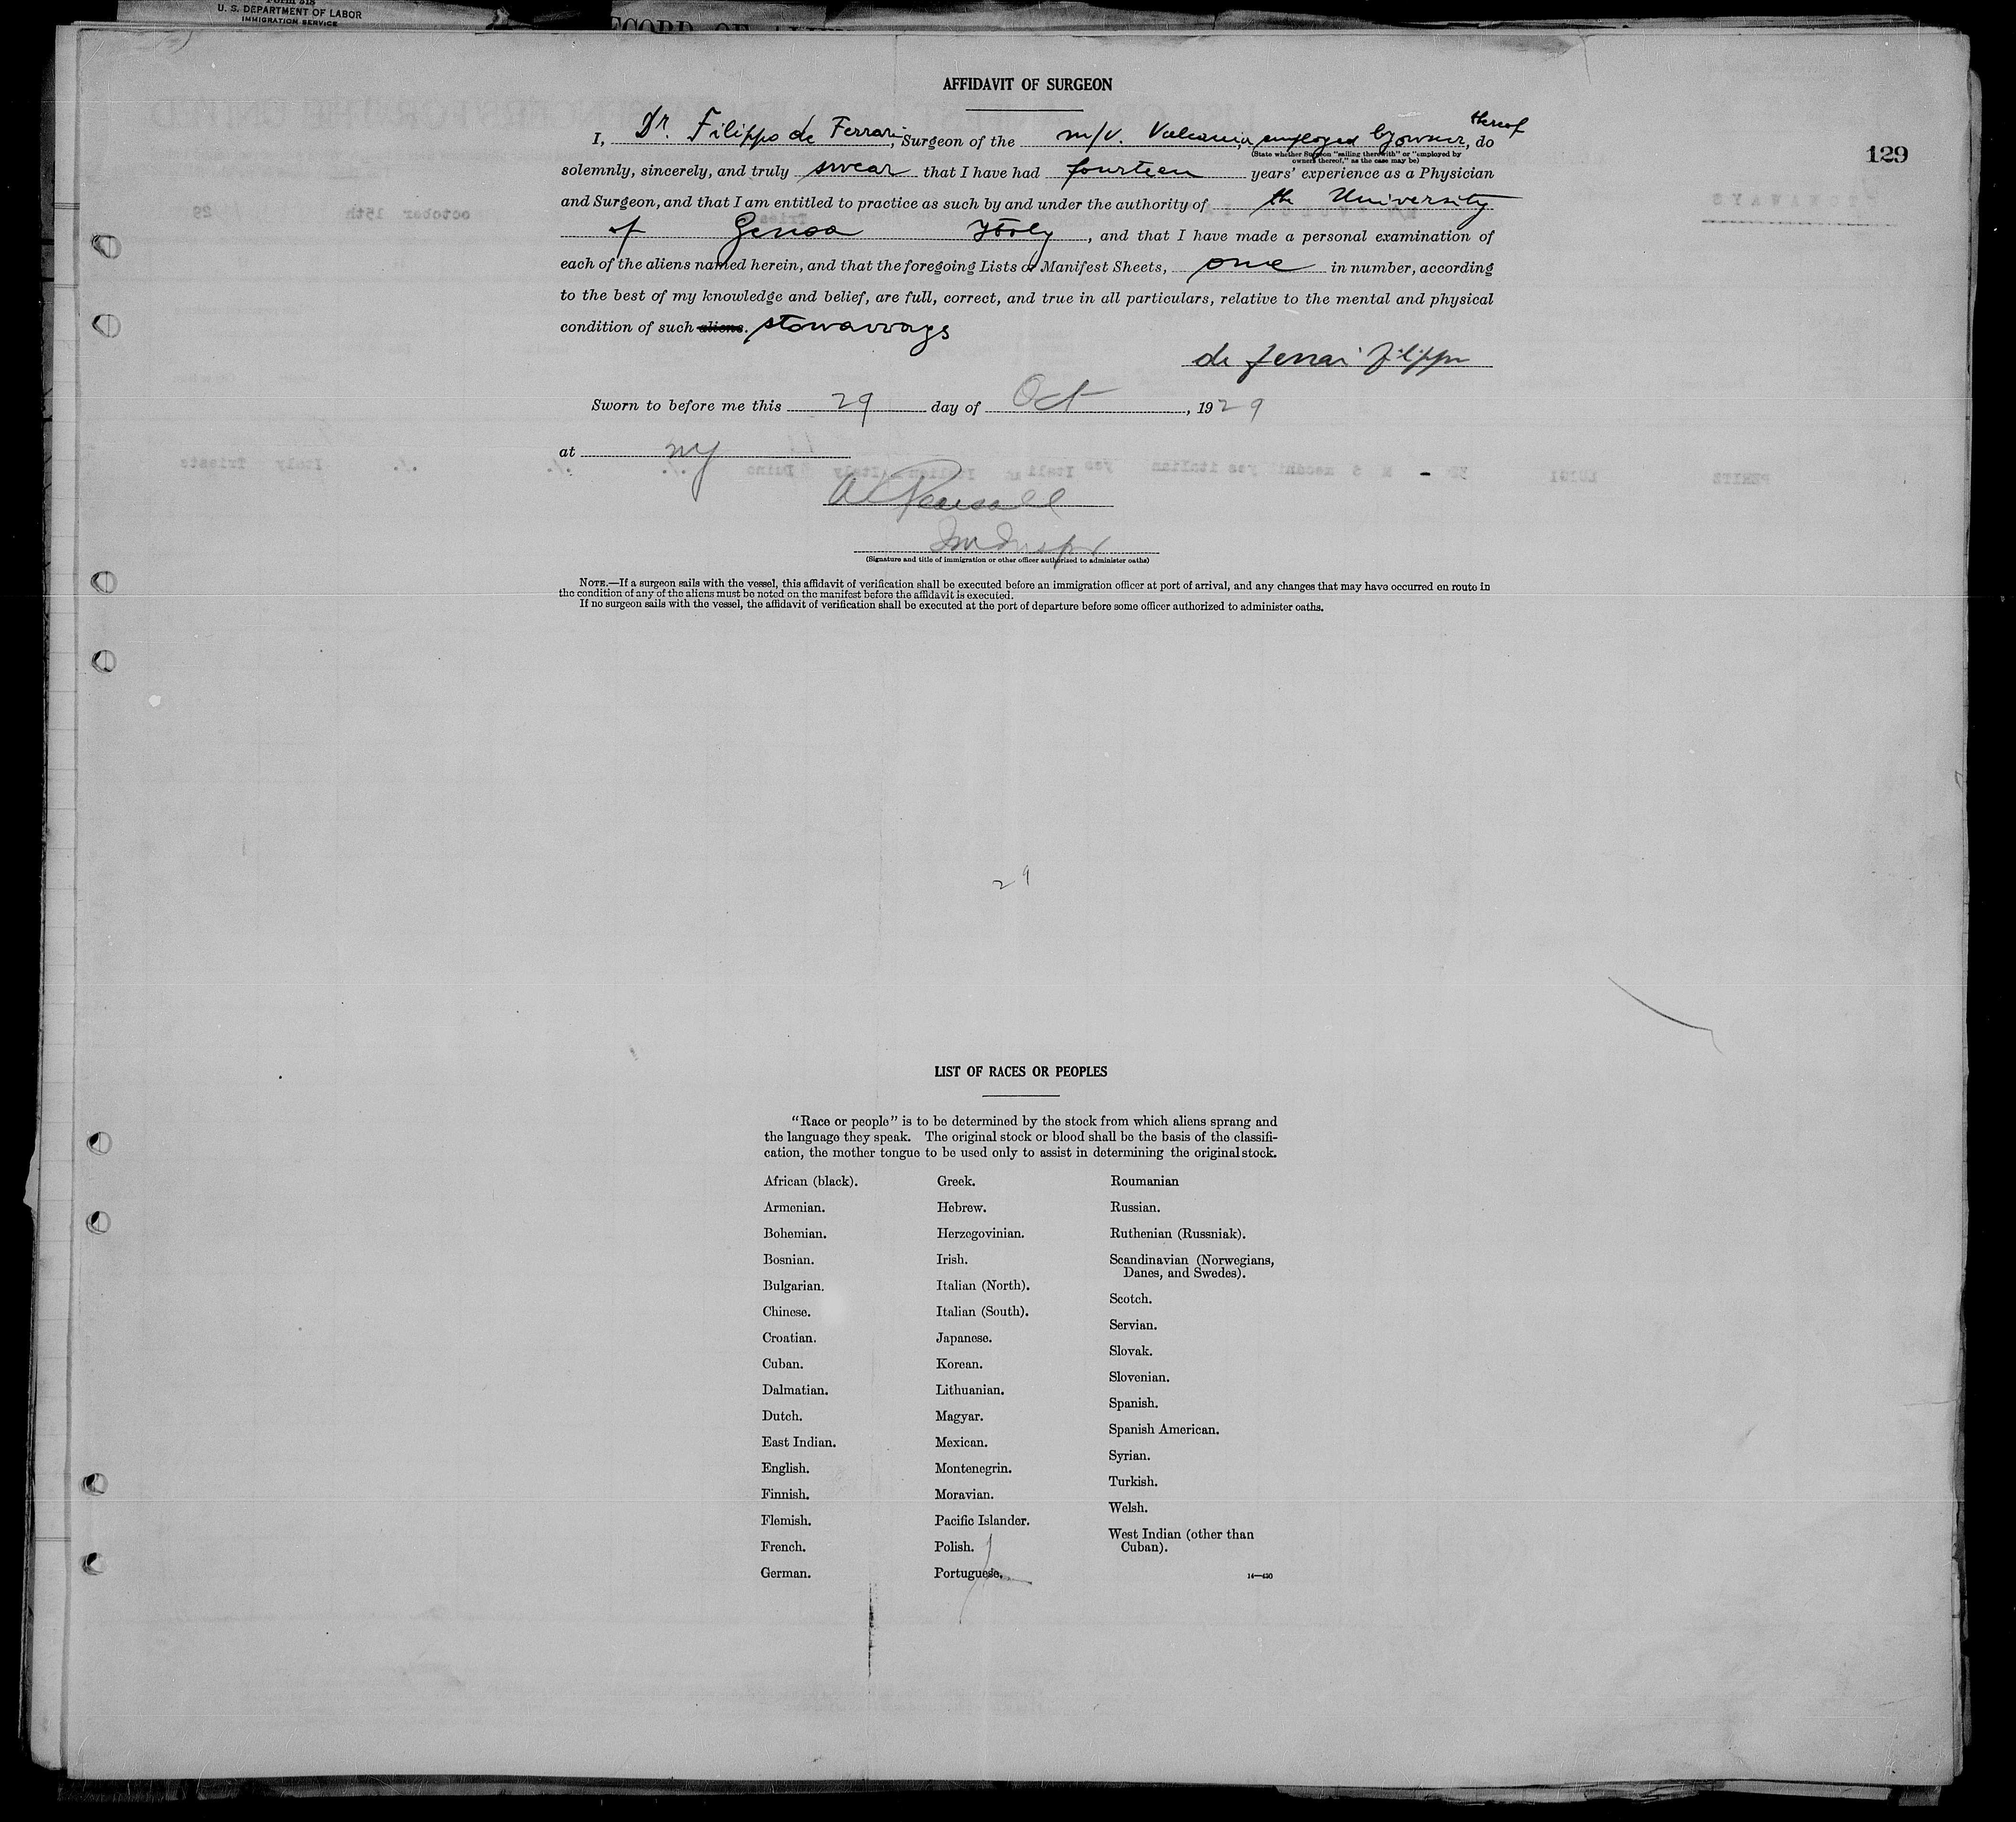 Form 518
U. S. DEPARTMENT OF LABOR
IMMIGRATION SERVICE
AFFIDAVIT OF SURGEON
129
I, Dr. Filippo de Ferrari, Surgeon of the m/v. Vulcania, employed by owner, thereof do
(State whether Surgeon "sailing therewith" or "employed by
owners thereof," as the case may be)
solemnly, sincerely, and truly swear that I have had fourteen years' experience as a Physician
and Surgeon, and that I am entitled to practice as such by and under the authority of the University
of Genoa Italy, and that I have made a personal examination of
each of the aliens named herein, and that the foregoing Lists or Manifest Sheets, one in number, according
to the best of my knowledge and belief, are full, correct, and true in all particulars, relative to the mental and physical
condition of such aliens. stowaways
de Ferrari Filippo
Sworn to before me this 29 day of Oct, 1929
at ny
(Signature and title of immigration or other officer authorized to administer oaths)
NOTE.—If a surgeon sails with the vessel, this affidavit of verification shall be executed before an immigration officer at port of arrival, and any changes that may have occurred en route in
the condition of any of the aliens must be noted on the manifest before the affidavit is executed.
If no surgeon sails with the vessel, the affidavit of verification shall be executed at the port of departure before some officer authorized to administer oaths.
29
LIST OF RACES OR PEOPLES
"Race or people" is to be determined by the stock from which aliens sprang and
the language they speak. The original stock or blood shall be the basis of the classifi-
cation, the mother tongue to be used only to assist in determining the original stock.
African (black).
Armenian.
Bohemian.
Bosnian.
Bulgarian.
Chinese.
Croatian.
Cuban.
Dalmatian.
Dutch.
East Indian.
English.
Finnish.
Flemish.
French.
German.
Greek.
Hebrew.
Herzegovinian.
Irish.
Italian (North).
Italian (South).
Japanese.
Korean.
Lithuanian.
Magyar.
Mexican.
Montenegrin.
Moravian.
Pacific Islander.
Polish.
Portuguese.
Roumanian
Russian.
Ruthenian (Russniak).
Scandinavian (Norwegians,
Danes, and Swedes).
Scotch.
Servian.
Slovak.
Slovenian.
Spanish.
Spanish American.
Syrian.
Turkish.
Welsh.
West Indian (other than
Cuban).
14—430